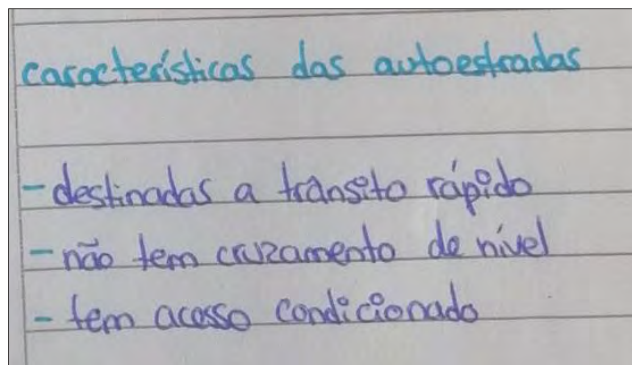 características das autoestradas
- destinadas a trânsito rápido
- não tem cruzamento de nível
- tem acesso condicionado